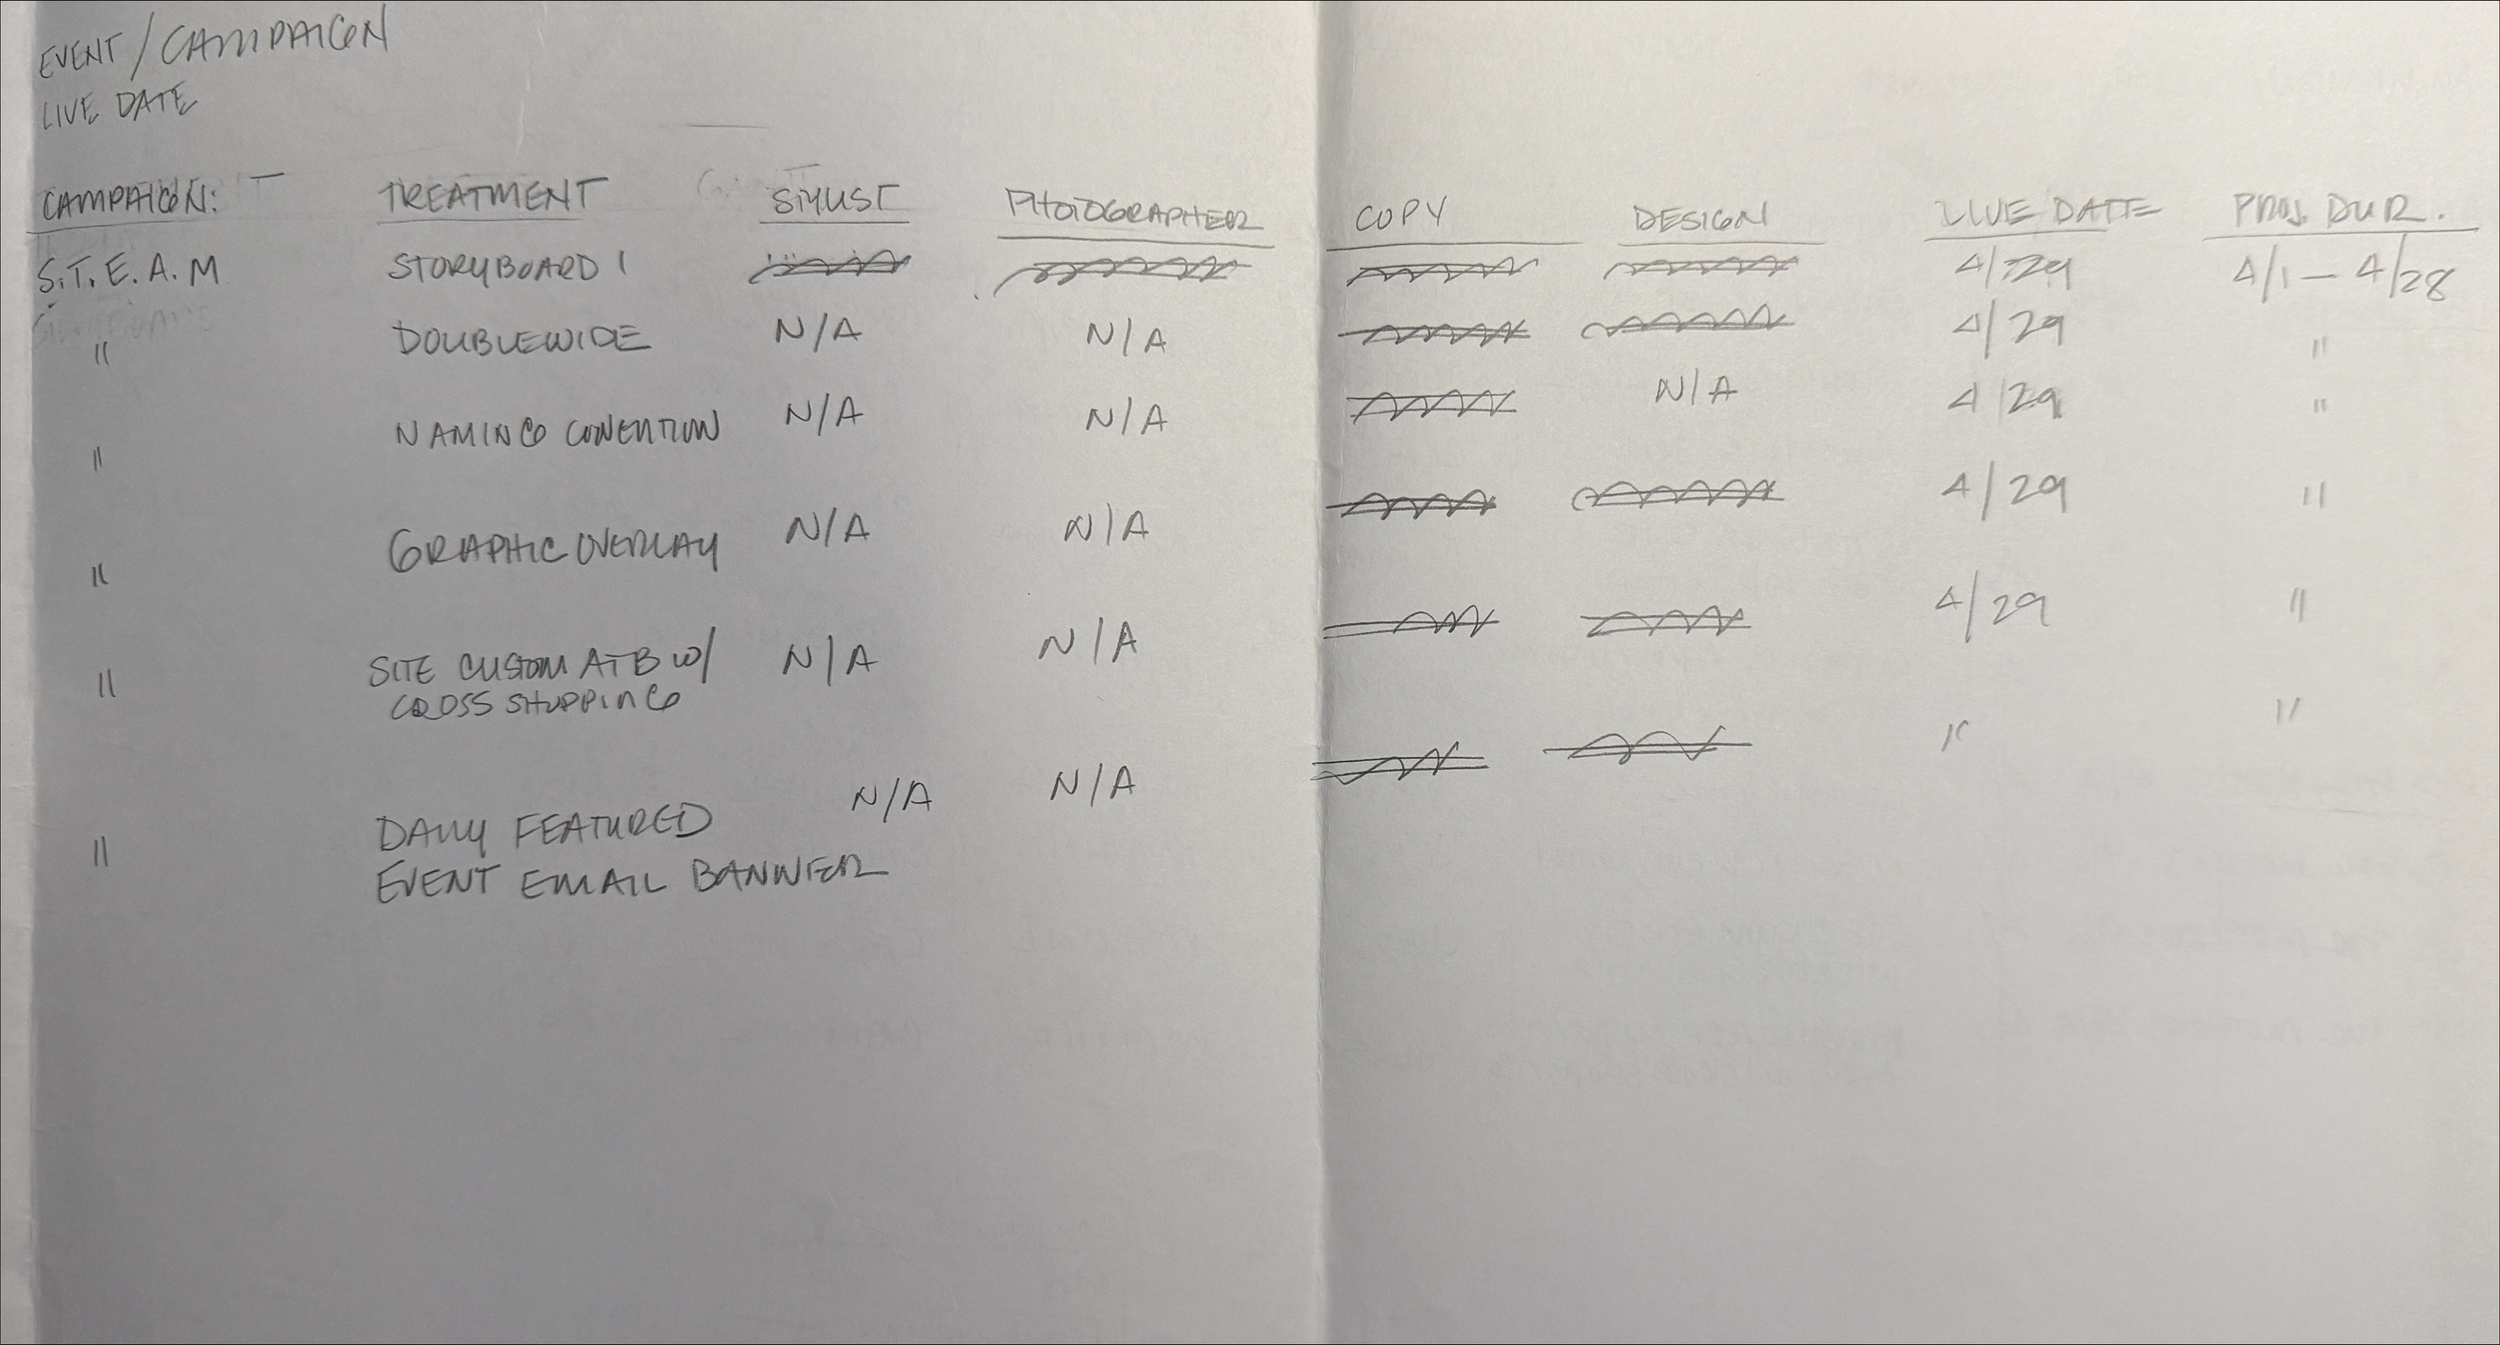 EVENT / CAMPAIGN
LIVE DATE
CAMPAIGN: TREATMENT STYLIST PHOTOGRAPHER COPY DESIGN LIVE DATE PROJ. DUR.
S.T.E.A.M STORYBOARD 1 4/29 4/1 – 4/28
" DOUBLEWIDE N/A N/A 4/29 "
" NAMING CONVENTION N/A N/A N/A 4/29 "
" GRAPHIC OVERLAY N/A N/A 4/29 "
" SITE CUSTOM ATB W/ N/A N/A 4/29 "
CROSS SHOPPING
" DAILY FEATURED N/A N/A " "
EVENT EMAIL BANNER